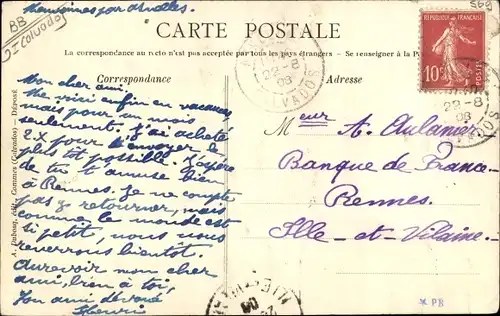 BB
Calvados
569
CARTE POSTALE
La correspondance au recto n'est pas acceptée par tous les pays étrangers. - Se renseigner à la
Correspondance
Adresse
22-8
08
CALVADOS
RÉPUBLIQUE FRANÇAISE
10c
POSTES
22-8
08
Mon cher ami.
Me voici enfin en vacances,
mais pour un mois
seulement. J'ai acheté
ex pour l'envoyer le
plus tôt possible. J'espère
que tu t'amuse bien
à Rennes. Je ne compte
pas y retourner, mais
comme le monde est
si petit, nous nous
reverrons bientôt.
Aurevoir mon cher
ami, bien à toi,
Ton ami dévoué
Henri
Meur A.
Banque de France
Rennes
Ille-et-Vilaine
* PR